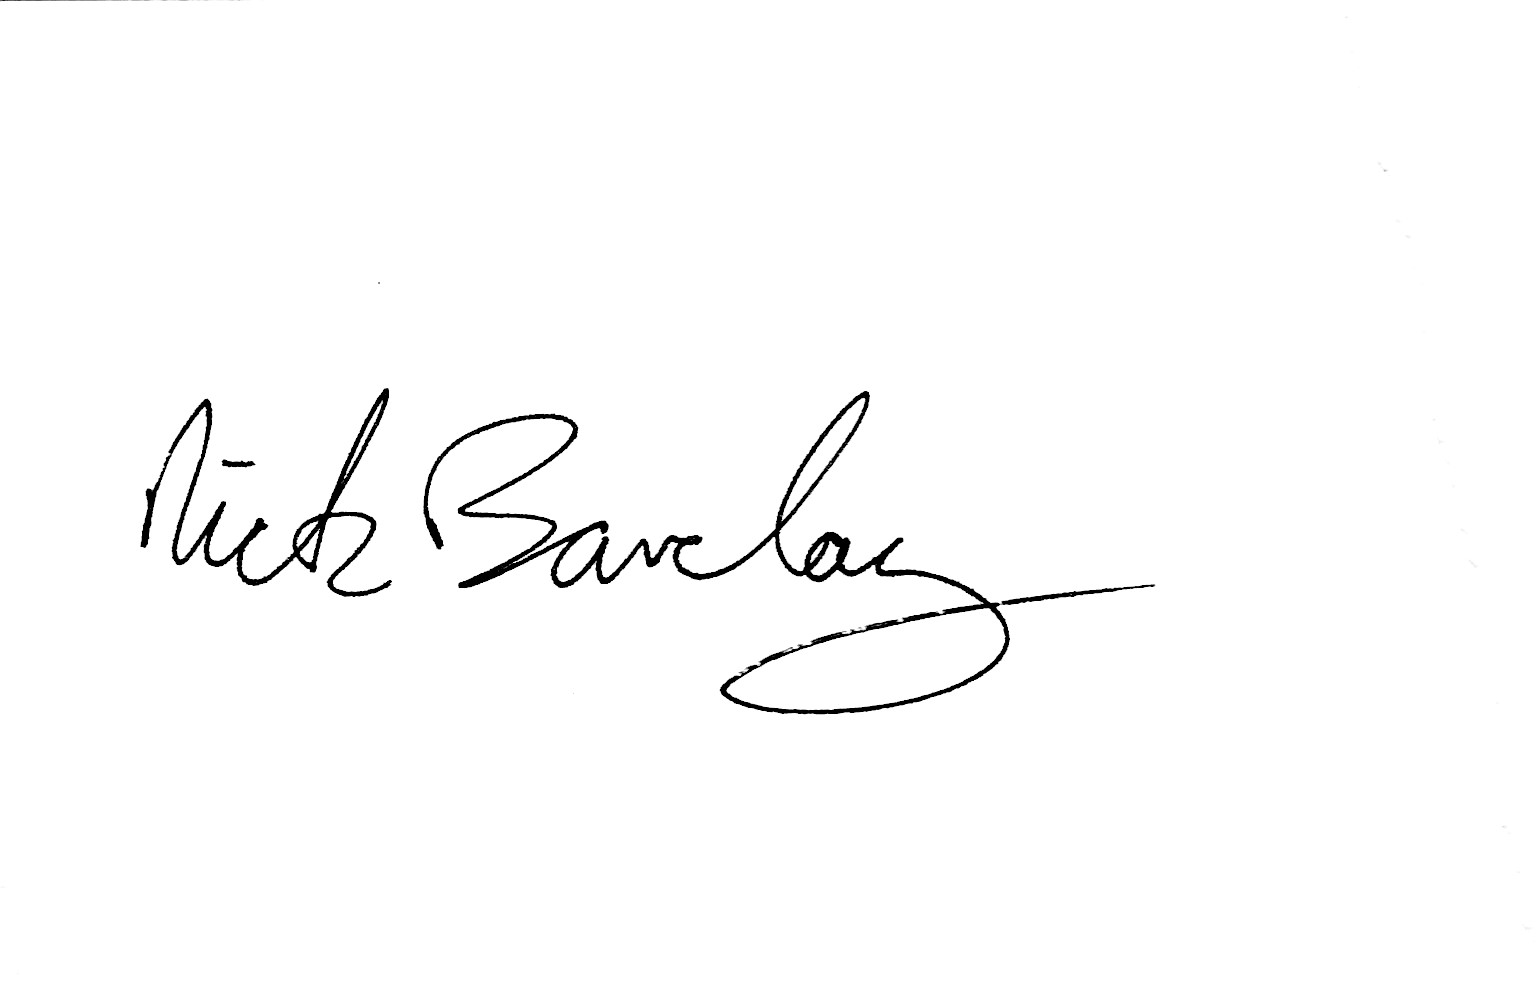 Nick Barclay